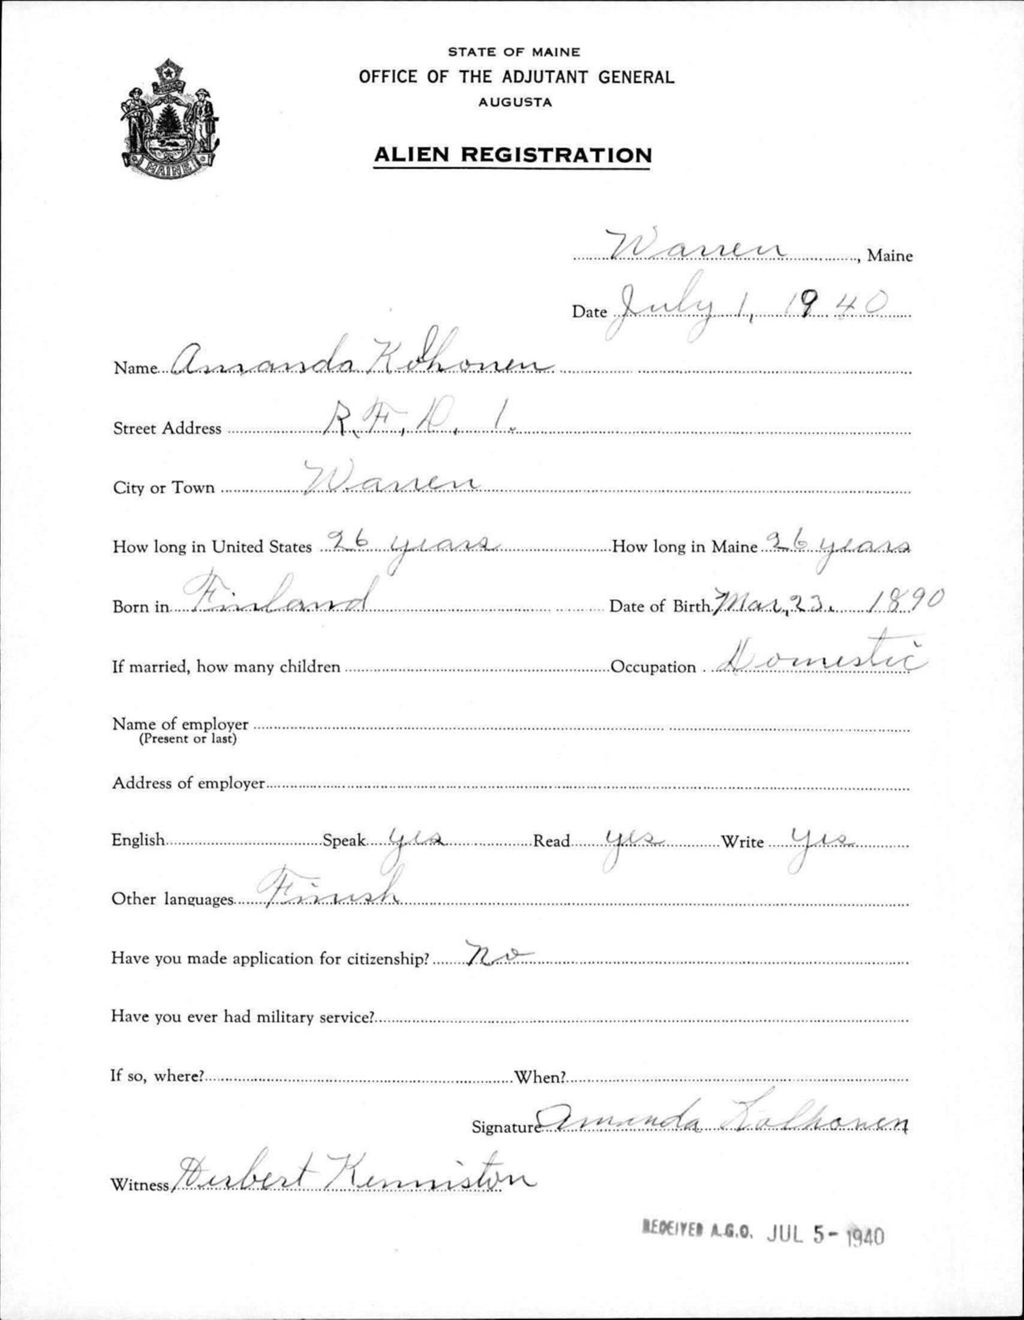 STATE OF MAINE
OFFICE OF THE ADJUTANT GENERAL
AUGUSTA
ALIEN REGISTRATION
MAINE
Warren, Maine
Date July 1, 1940
Name Amanda Kolhonen
Street Address R. F. D. 1.
City or Town Warren
How long in United States 26 years How long in Maine 26 years
Born in Finland Date of Birth Mar, 23. 1890
If married, how many children Occupation Domestic
Name of employer
(Present or last)
Address of employer
English Speak yes Read yes Write yes
Other languages Finish
Have you made application for citizenship? No
Have you ever had military service?
If so, where? When?
Signature Amanda Kolhonen
Witness Herbert Kenniston
RECEIVED A.G.O. JUL 5 - 1940